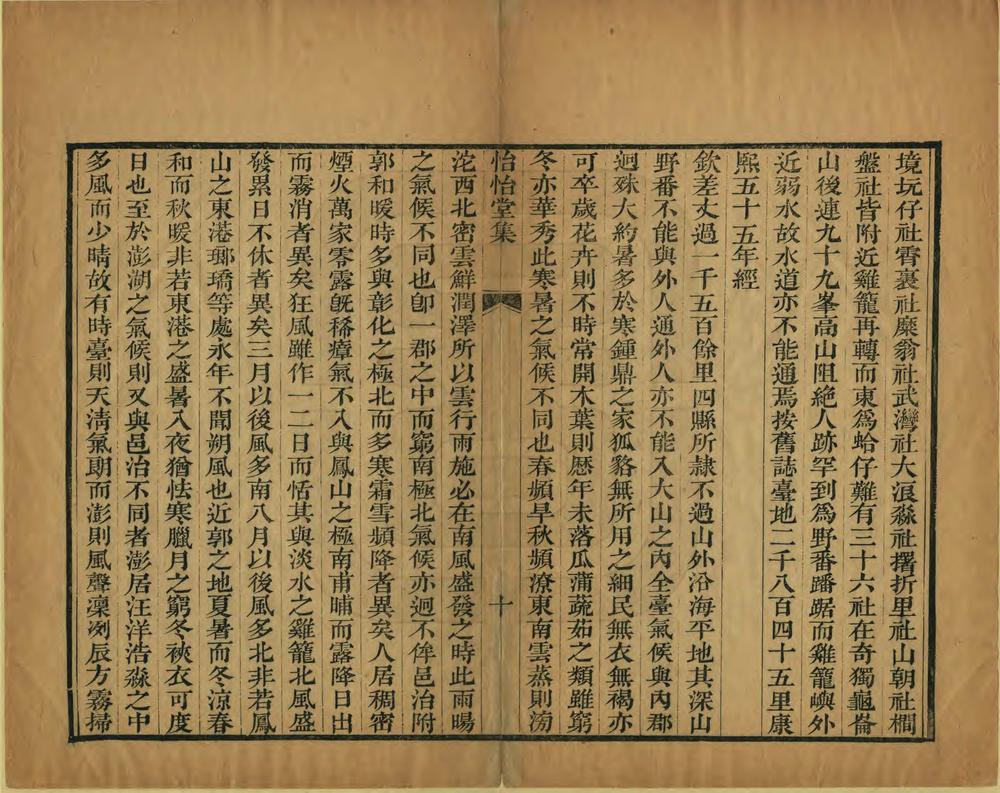 境坑仔社霄裏社糜翁社武灣社大浪淼社擺折里社山朝社橺
盤社皆附近雞籠再轉而東爲蛤仔難有三十六社在奇獨龜崙
山後連九十九峯高山阻絕人跡罕到爲野番蹯踞而雞籠嶼外
近弱水故水道亦不能通焉按舊誌臺地二千八百四十五里康
熙五十五年經
欽差丈過一千五百餘里四縣所隷不過山外沿海平地其深山
野番不能與外人通外人亦不能入大山之內全臺氣候與內郡
迥殊大約暑多於寒鍾鼎之家狐貉無所用之細民無衣無褐亦
可卒歲花卉則不時常開木葉則歷年未落瓜蒲蔬茹之類雖窮
冬亦華秀此寒暑之氣候不同也春頻旱秋頻潦東南雲蒸則滂
怡怡堂集 十
沱西北密雲鮮潤澤所以雲行雨施必在南風盛發之時此雨暘
之氣候不同也卽一郡之中而窮南極北氣候亦迥不侔邑治附
郭和暖時多與彰化之極北而多寒霜雪頻降者異矣人居稠密
煙火萬家零露旣稀瘴氣不入與鳳山之極南甫晡而露降日出
而霧消者異矣狂風雖作一二日而恬其與淡水之雞籠北風盛
發累日不休者異矣三月以後風多南八月以後風多北非若鳳
山之東港瑯璚等處永年不聞朔風也近郭之地夏暑而冬涼春
和而秋暖非若東港之盛暑入夜猶怯寒臘月之窮冬裌衣可度
日也至於澎湖之氣候則又與邑治不同者澎居汪洋浩淼之中
多風而少晴故有時臺則天淸氣期而澎則風聲凜冽辰方霧掃